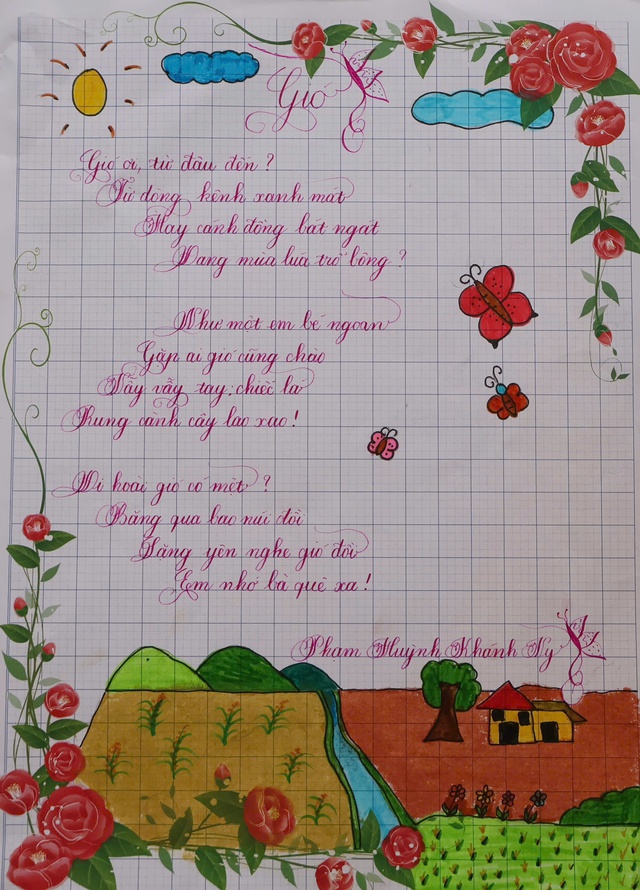 Gió
Gió ơi, từ đâu đến ?
Từ dòng kênh xanh mát
Hay cánh đồng bát ngát
Đang mùa lúa trổ bông ?
Như một em bé ngoan
Gặp ai gió cũng chào
Vẫy vẫy tay: chiếc lá
Rung cành cây lao xao !
Đi hoài gió có mệt ?
Băng qua bao núi đồi
Lặng yên nghe gió đồi
Em nhớ bà quê xa !
Phạm Huỳnh Khánh Vy